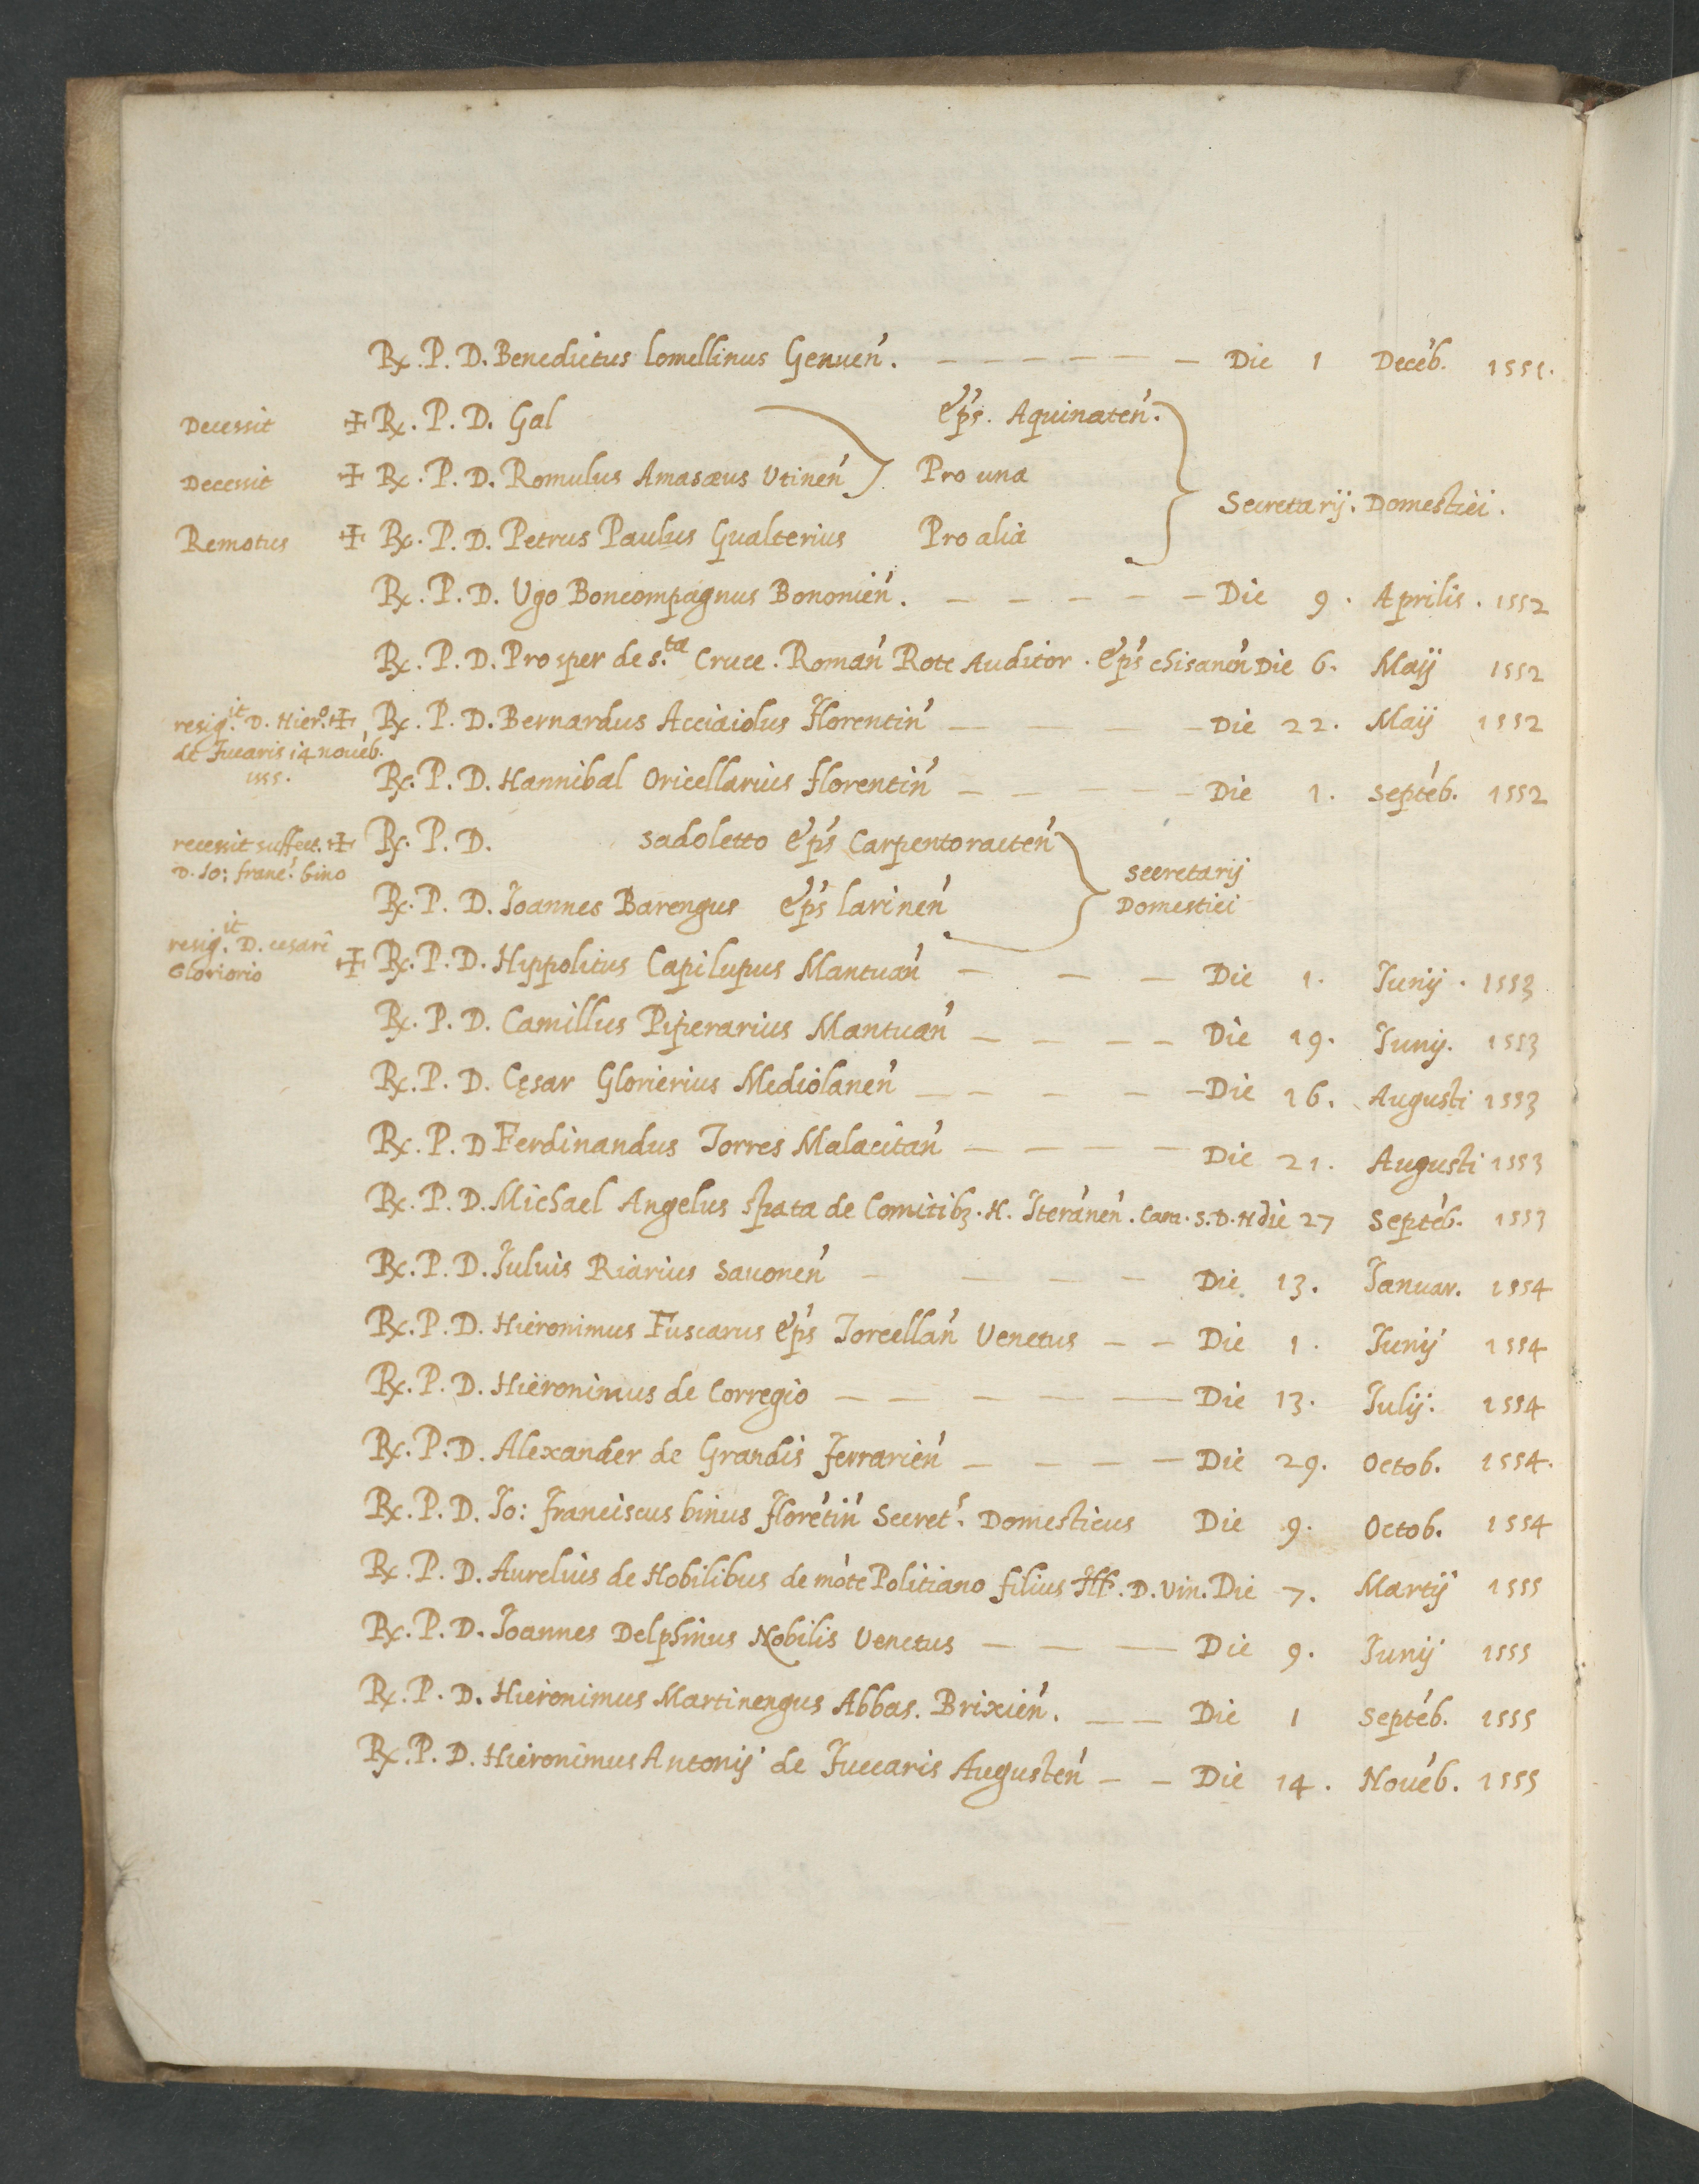 Rx. P. D. Benedictus lomellinus Genuen̄. – – – – – – Die 1 Decēb. 1551.
Decessit ✠ Rx. P. D. Gal ep̄s. Aquinaten̄.
Decessit ✠ Rx. P. D. Romulus Amasæus Utinen̄ Pro una
Secretarij. Domestici.
Remotus ✠ Rx. P. D. Petrus Paulus Gualterius Pro alia
Rx. P. D. Ugo Boncompagnus Bononien̄. – – – – – – Die 9. Aprilis. 1552
Rx. P. D. Prosper de s.ta Cruce. Roman̄ Rote Auditor. ep̄s chisanen̄ Die 6. Maij 1552
resig.it D. Hier.o ✠ Rx. P. D. Bernardus Acciaiolus Florentin̄ – – – – Die 22. Maij 1552
de Fucaris 14 nouēb.
155.
Rx. P. D. Hannibal Oricellarius florentin̄ – – – – – – Die 1. septēb. 1552
recessit suffect. ✠ Rx. P. D. sadoletto ep̄s Carpentoracten̄
D. Io: franc. bino
secretarij
Domestici
Rx. P. D. Joannes Barengus ep̄s larinen̄
resig.it D. cesari
Gloriorio ✠ Rx. P. D. Hippolitus Capilupus Mantuan̄ – – – Die 1. Junij. 1553
Rx. P. D. Camillus Piperarius Mantuan̄ – – – – Die 19. Junij. 1553
Rx. P. D. Cęsar Glorierius Mediolanen̄ – – – – – Die 16. Augusti 1553
Rx. P. D Ferdinandus Torres Malacitan̄ – – – – Die 21. Augusti 1553
Rx. P. D. Michael Angelus spata de Comitibꝫ. H. Iteranen̄. Cam. S. D. N die 27 septēb. 1553
Rx. P. D. Julius Riarius Sauonen̄ – – – – Die 13. Januar. 1554
Rx. P. D. Hieronimus Fuscarus ep̄s Torcellan̄ Venetus – – Die 1. Junij 1554
Rx. P. D. Hieronimus de Corregio – – – – – Die 13. Julij. 1554
Rx. P. D. Alexander de Grandis ferrarien̄ – – – – Die 29. Octob. 1554.
Rx. P. D. Io: franciscus binus florētin̄ Secret. Domesticus Die 9. Octob. 1554
Rx. P. D. Aurelius de Nobilibus de mōte Politiano filius D. Vin. Die 7. Martij 1555
Rx. P. D. Joannes Delphinus Nobilis Venetus – – – Die 9. Junij 1555
Rx. P. D. Hieronimus Martinengus Abbas. Brixien̄. – – Die 1 septēb. 1555
Rx. P. D. Hieronimus Antonij de Fuccaris Augusten̄ – – Die 14. Nouēb. 1555